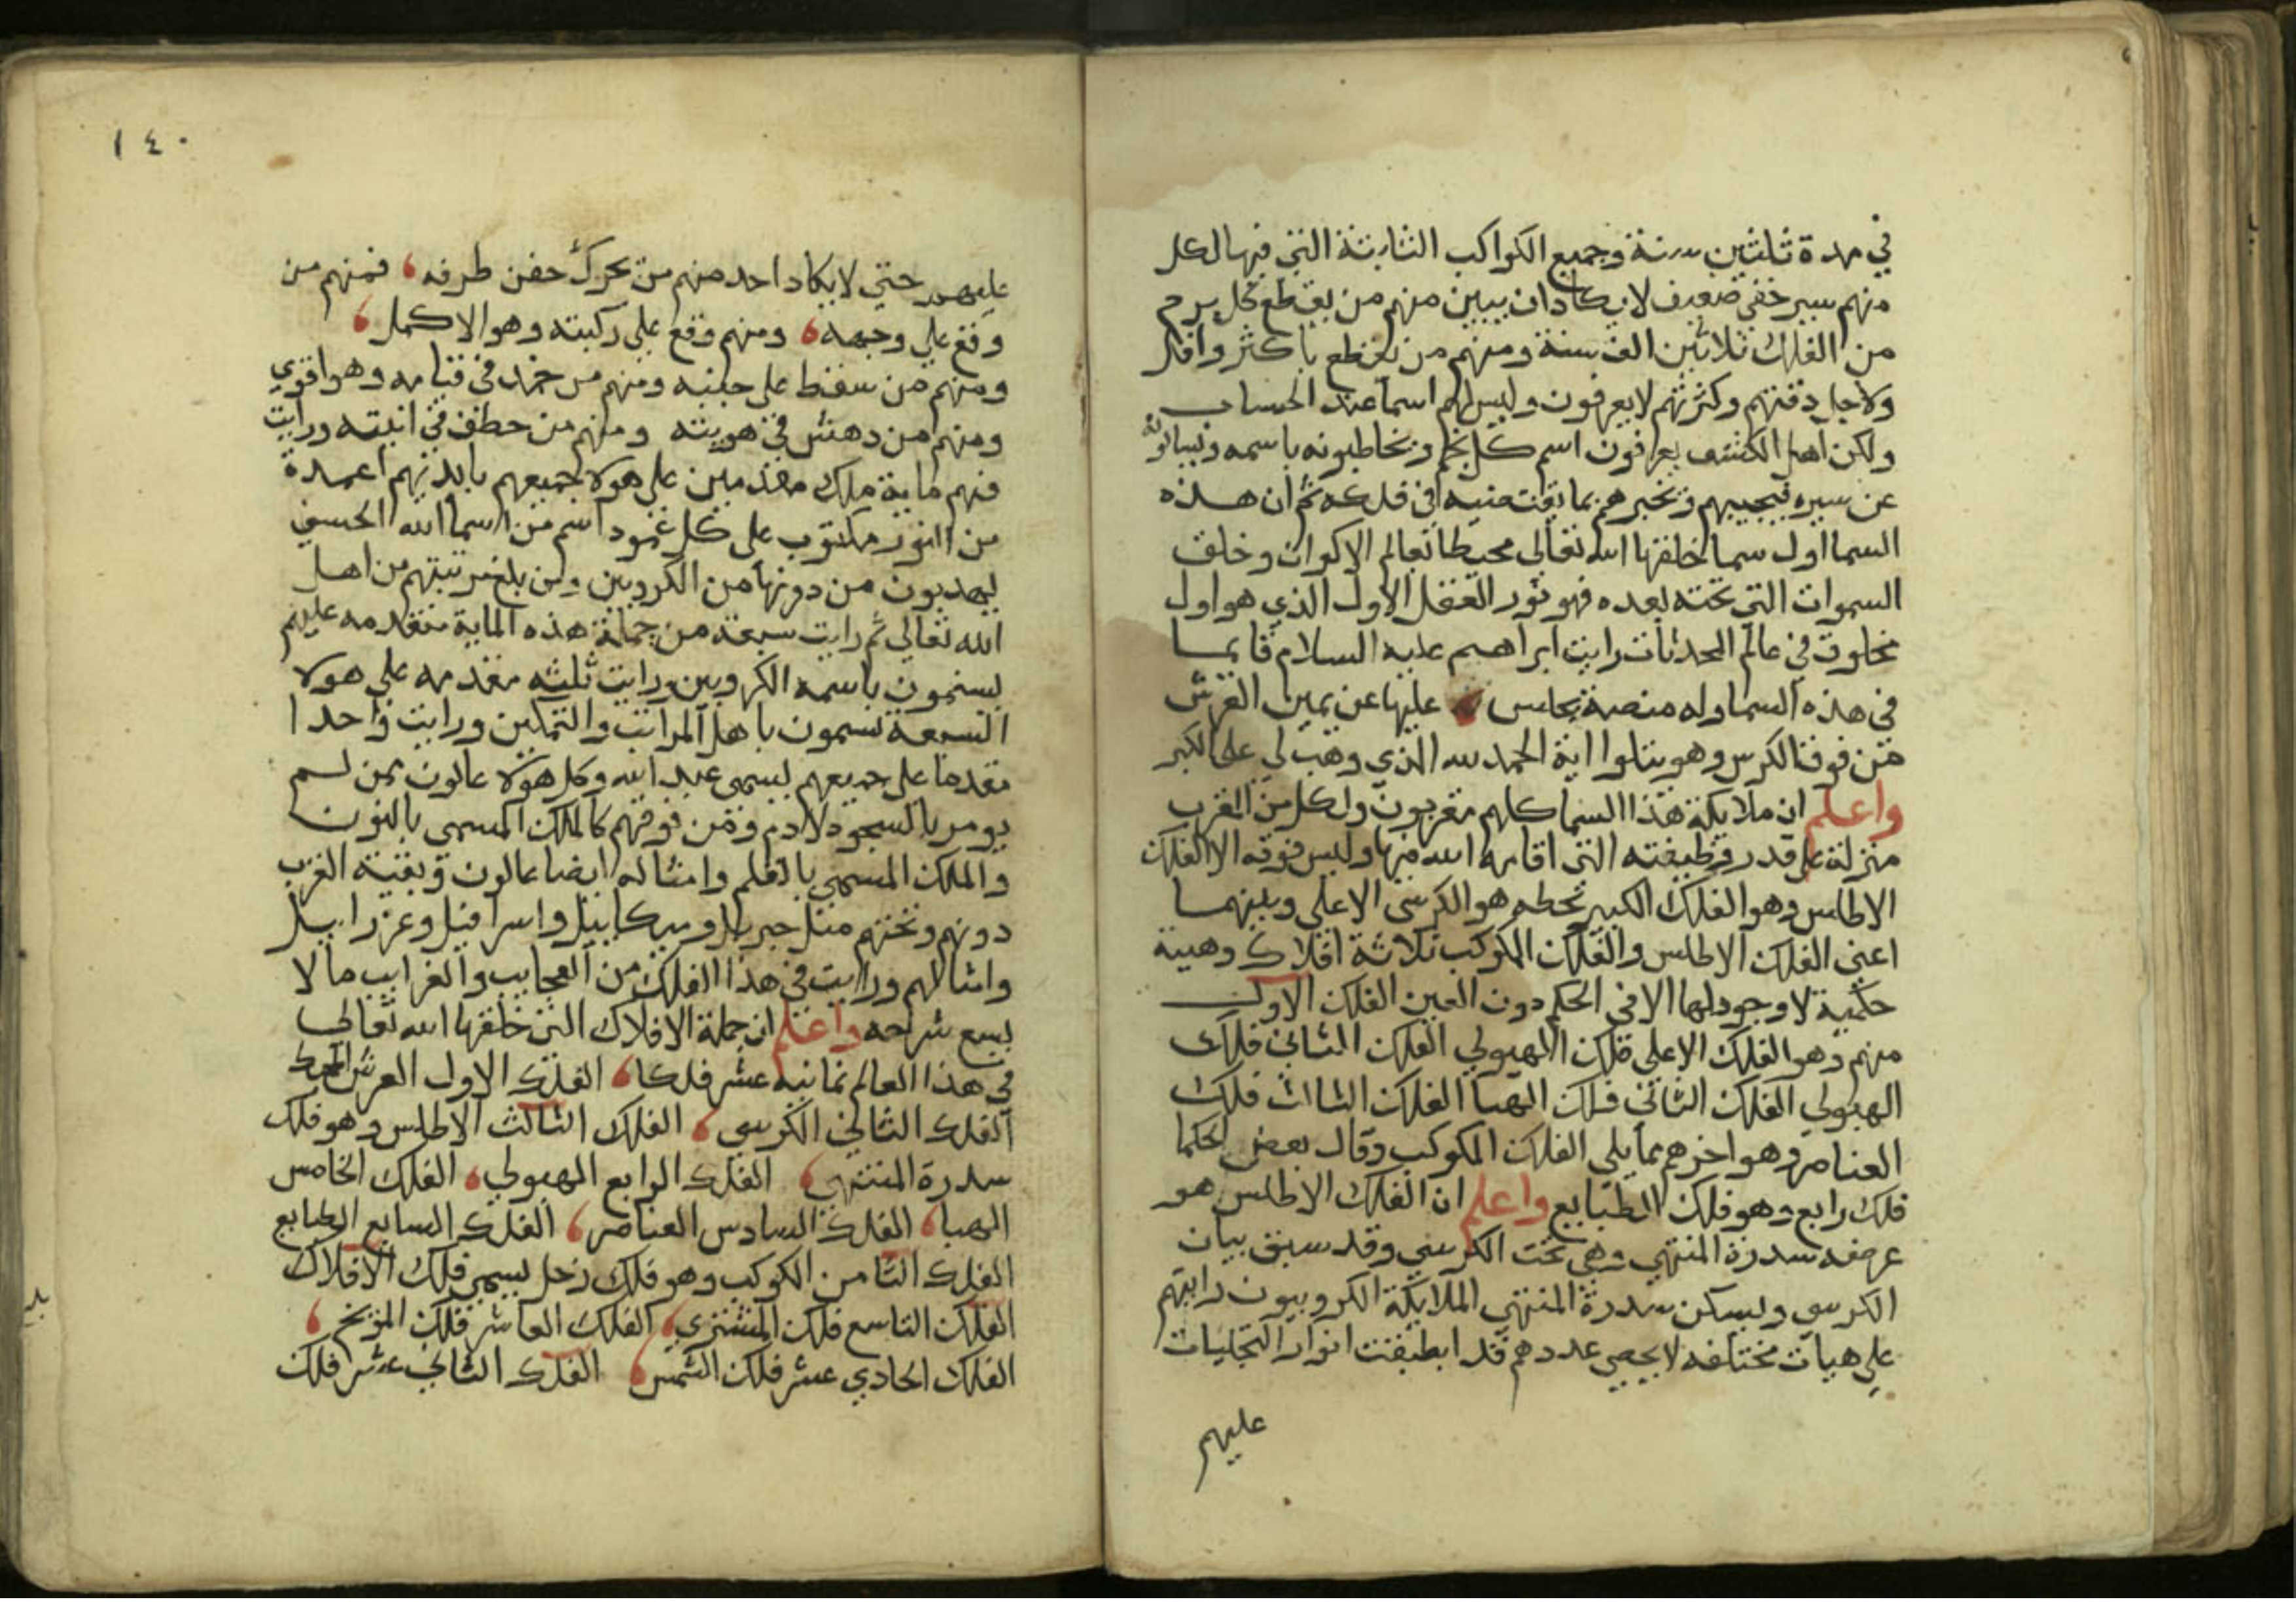 في مدة ثلثين سنة وجميع الكواكب الثابتة التي فيها لكل
منهم سير خفي ضعيف لا يكاد ان يبين منهم من يقطع كل برج
من الفلك ثلاثين الف سنة ومنهم من يقطع باكثر واقل
ولاجل دقتهم وكثرتهم لا يعرفون وليس لهم اسما عند الحساب
ولكن اهل الكشف يعرفون اسم كل نجم ويخاطبونه باسمه ويسالونه
عن سيره فيجيبهم ويخبرهم بما يقتضيه في فلكه ثم ان هذه
السما اول سما خلقها الله تعالي محيطا بعالم الاكوان وخلق
السموات التي تحته بعده فهو نور العقل الاول الذي هو اول
مخلوق في عالم المحدثات رايت ابراهيم عليه السلام قايما
في هذه السما وله منصة يجلس عليها عن يمين العرش
من فوق الكرسي وهو يتلوا اية الحمد لله الذي وهب لي على الكبر
واعلم ان ملايكة هذا السما كلهم مقربون ولكل من المقرب
منزلة على قدر وظيفته التي اقامه الله فيها وليس فوقه الا الفلك
الاطلس وهو الفلك الكبير سطحه هو الكرسي الاعلي وبينهما
اعني الفلك الاطلس والفلك المكوكب ثلاثة افلاك وهمية
حكمية لا وجود لها الا في الحكم دون العين الفلك الاول
منهم وهو الفلك الاعلى فلك الهيولي الفلك الثاني فلك
الهيولي الفلك الثاني فلك الهبا الفلك الثالث فلك
العناصر وهو اخرهم مما يلي الفلك المكوكب وقال بعض الحكما
فلك رابع وهو فلك الطبايع واعلم ان الفلك الاطلس هو
عرصه سدرة المنتهي وهي تحت الكرسي وقد سبق بيان
الكرسي ويسكن سدرة المنتهي الملايكة الكروبيون رايتهم
على هيات مختلفه لا يحصى عددهم قد انطبقت انوار التجليات
عليهم
١٤٠
عليهم حتي لا يكاد احد منهم من تحرك جفن طرفه فمنهم من
وقع على وجهه ومنهم وقع على ركبته وهو الاكمل
ومنهم من سقط على جنبه ومنهم من جمد في قيامه وهو اقوي
ومنهم من دهش في هويته ومنهم من خطف في انيته ورايت
منهم ماية ملك مقدمين على هولا جميعهم بايديهم اعمدة
من النور مكتوب على كل عمود اسم من اسما الله الحسني
ليهديون من دونها من الكروبين ومن بلغ مرتبتهم من اهل
الله تعالي ثم رايت سبعة من جملة هذه الماية متقدمه عليهم
يسمون باسمه الكروبين ورايت ثلثه مقدمه على هولا
السبعة يسمون باهل المراتب والتمكين ورايت واحدا
مقدما على جميعهم يسمى عبد الله وكل هولا عالون ممن لم
يومر بالسجود لادم ومن فوقهم كالملك المسمى بالنون
والملك المسمي بالقلم وامثاله ايضا عالون وبقية القرب
دونهم وتحتهم مثل جبريل وميكاييل واسرافيل وعزراييل
وامثالهم ورايت في هذا الفلك من العجايب والغرايب ما لا
يسع شرحه واعلم ان جملة الافلاك التي خلقها الله تعالي
في هذا العالم ثمانيه عشر فلكا الفلك الاول العرش المحيط
الفلك الثاني الكرسي الفلك الثالث الاطلس وهو فلك
سدرة المنتهي الفلك الرابع الهيولي الفلك الخامس
الهبا الفلك السادس العناصر الفلك السابع الطبايع
الفلك الثامن الكوكب وهو فلك زحل يسمى فلك الافلاك
الفلك التاسع فلك المشتري الفلك العاشر فلك المريخ
الفلك الحادي عشر فلك الشمس الفلك الثاني عشر فلك